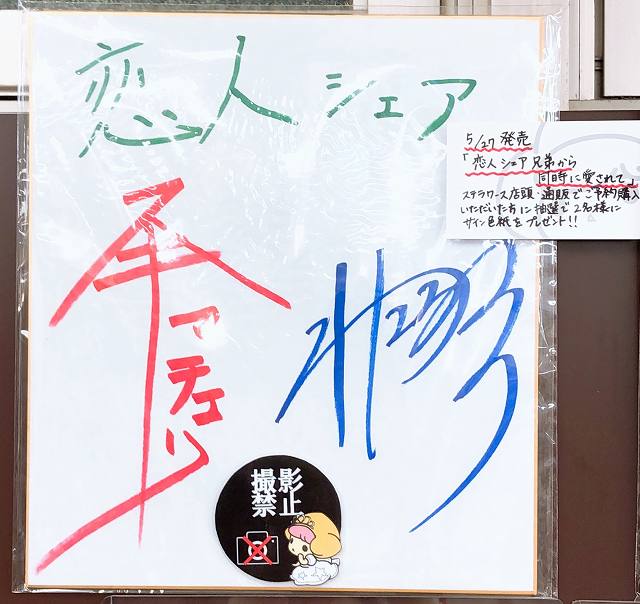 恋人シェア
5/27 発売
「恋人シェア 兄弟から
同時に愛されて」
ステラワース店頭・通販でご予約購入
いただいた方に抽選で2名様に
サイン色紙をプレゼント!!
撮影
禁止